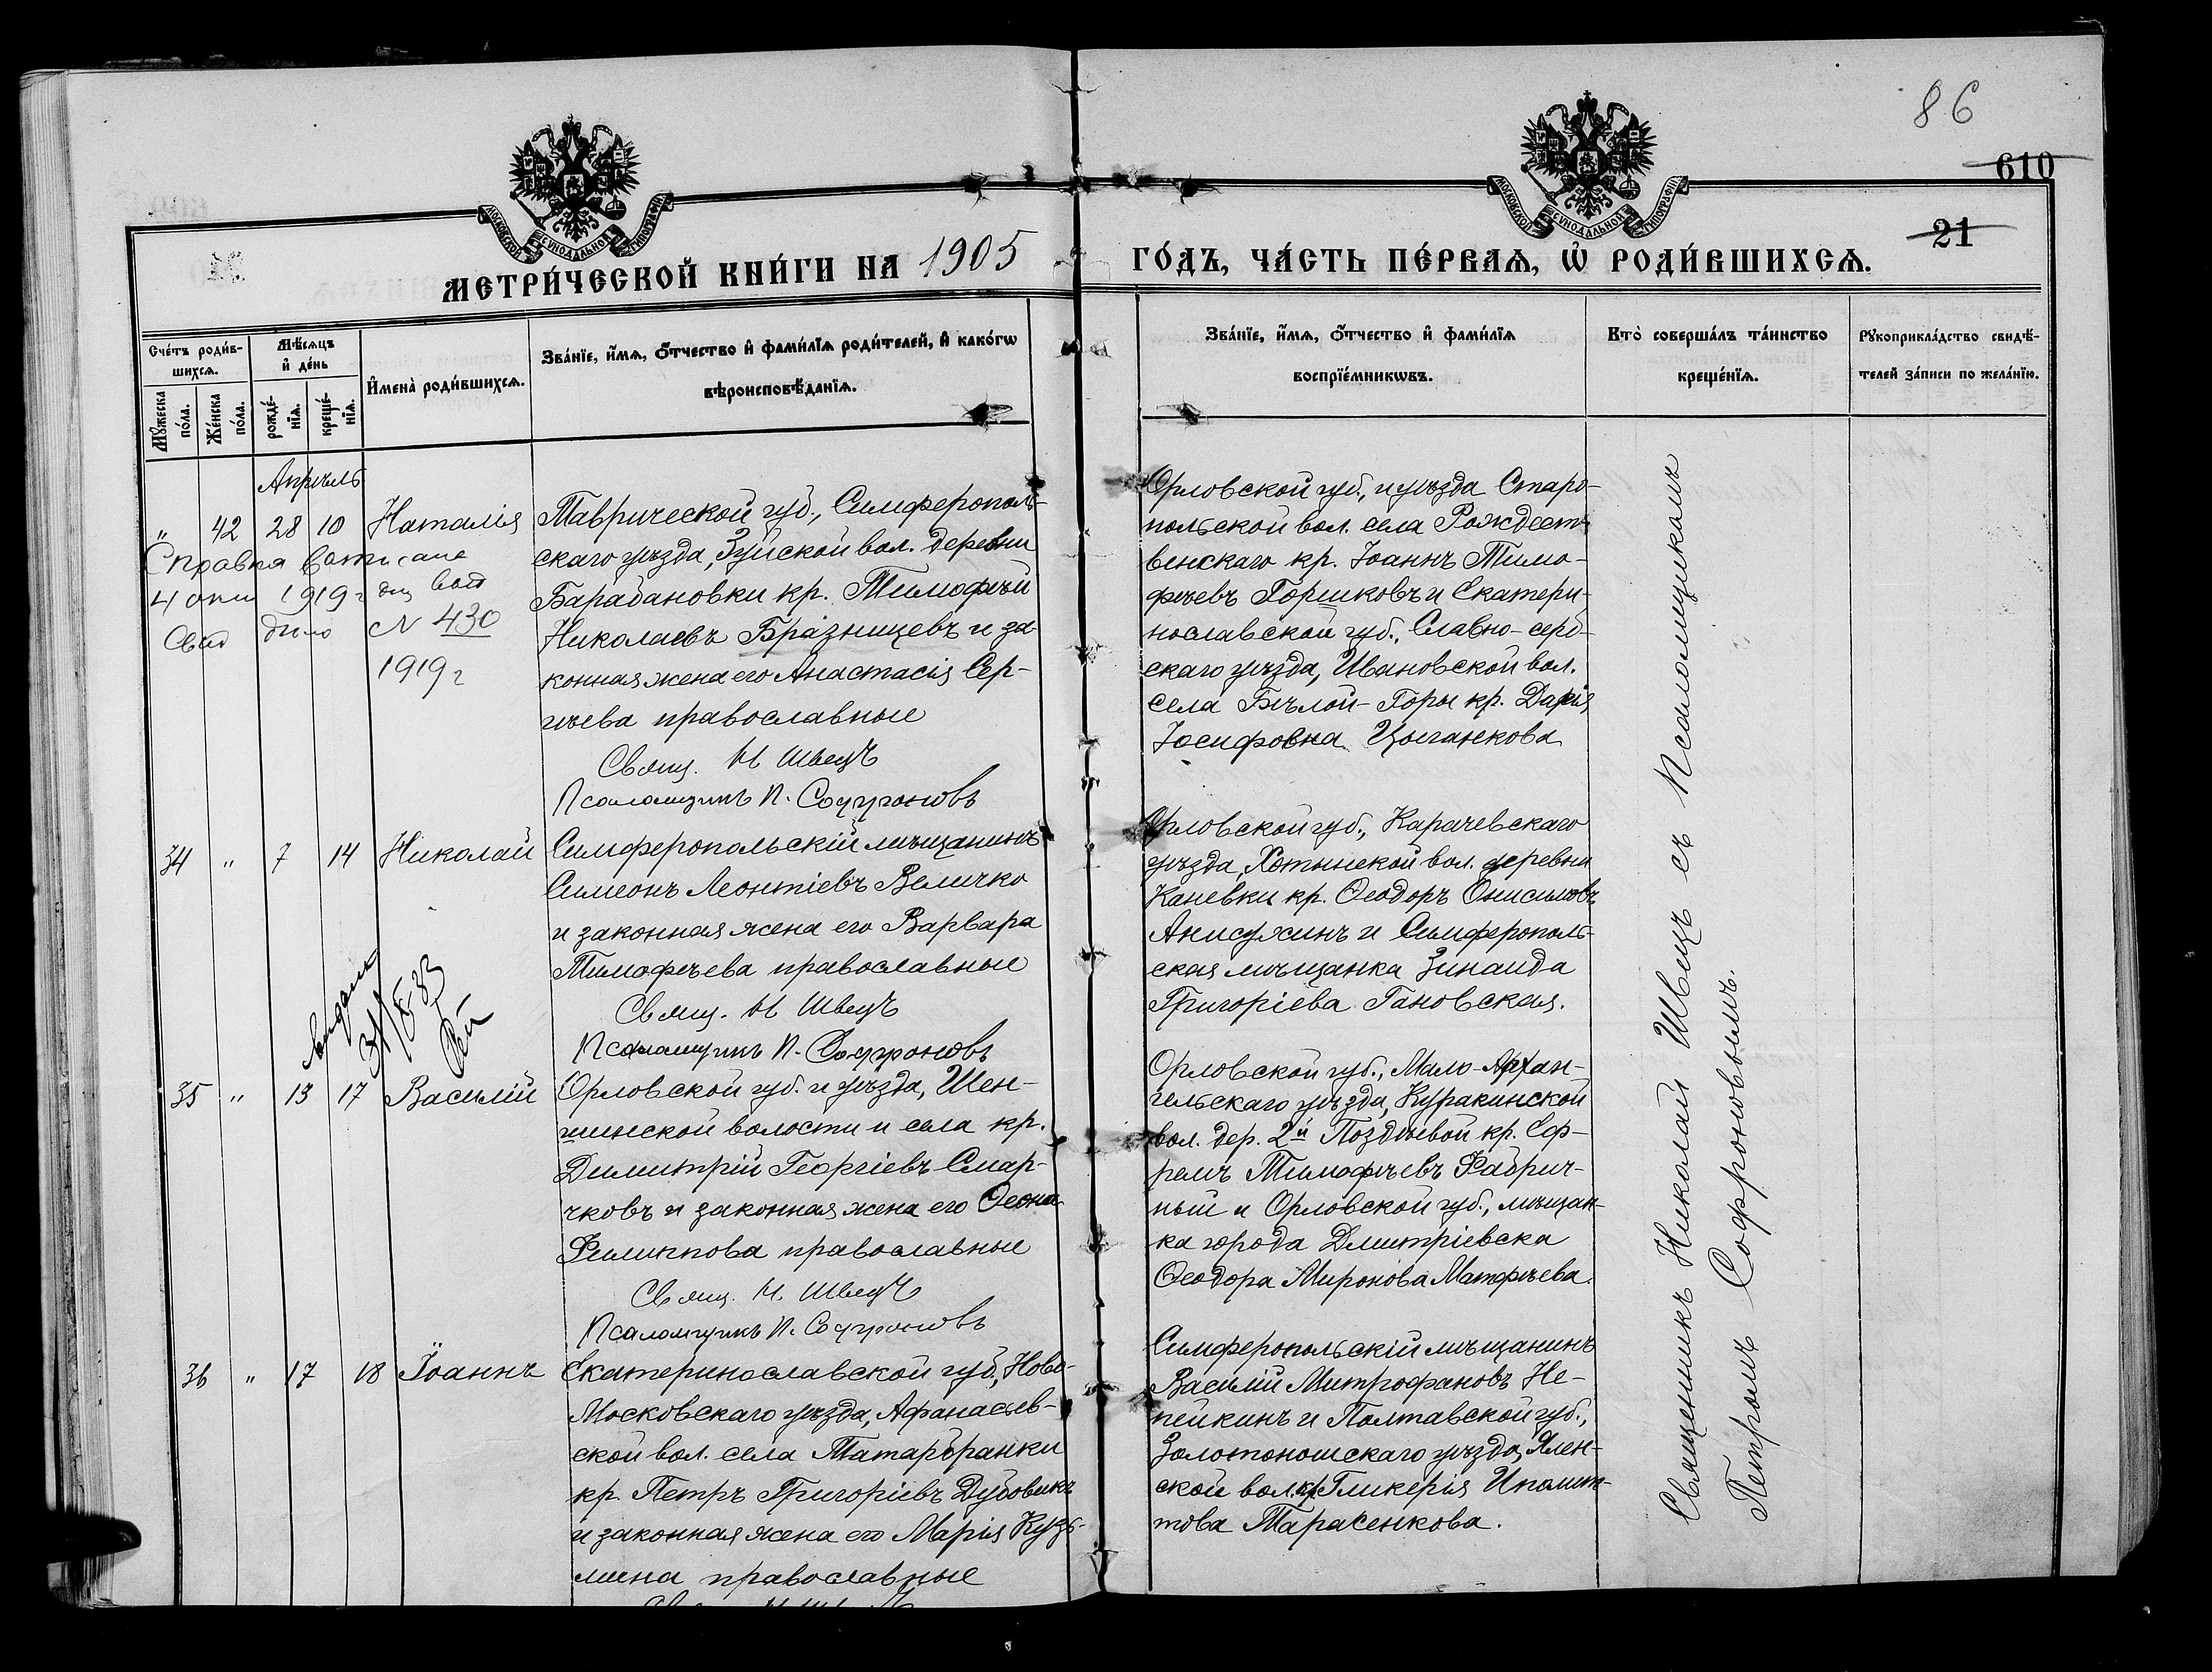 86
610
21
МОСКОВСКОЙ СУНОДАЛЬНОЙ ТИПОГРАФІИ
МОСКОВСКОЙ СУНОДАЛЬНОЙ ТИПОГРАФІИ
МЕТРИ́ЧЕСКОЙ КНИ́ГИ НА 1905
ГО́ДЪ, ЧА́СТЬ ПЕ́РВАѦ, Ѡ҆ РОДИ́ВШИХСѦ.
Сче́тъ роди́в-
шихсѧ.
Мѣ́сѧцъ
и҆ де́нь
Мꙋ́жеска
по́ла.
Же́нска
по́ла.
рожде́-
нїѧ.
креще́-
нїѧ.
И҆мена̀ роди́вшихсѧ.
Зва́нїе, и҆́мѧ, ѻ҆́тчество и҆ фами́лїѧ роди́телей, и҆ како́гѡ
вѣроисповѣ́данїѧ.
Зва́нїе, и҆́мѧ, ѻ҆́тчество и҆ фами́лїѧ
воспрїе́мникѡвъ.
Кто̀ соверша́лъ та́инство
креще́нїѧ.
Рꙋкоприкла́дство свидѣ́-
телей за́писи по жела́нїю.
Апрѣль
" 42 28 10 Наталія
Справка
4 1919 г
№ 430
1919 г
Таврической губ., Симферополь-
скаго уѣзда, Зуйской вол. деревни
Барабановки кр. Тимофѣй
Николаевъ Бразницевъ и за-
конная жена его Анастасія Сер-
гѣева православные
Свящ. Н Швецъ
Псаломщикъ П. Софроновъ
Орловской губ., и уѣзда Старо-
польской вол. села Рождест-
венскаго кр. Іоаннъ Тимо-
фѣевъ Горшковъ и Екатери-
нославской губ., Славно-серб-
скаго уѣзда, Ивановской вол.
села Бѣлой-Горы кр. Дарія
Іосифовна Цыганкова
34 " 7 14 Николай
Симферопольскій мѣщанинъ
Симеонъ Леонтіевъ Величко
и законная жена его Варвара
Тимофѣева православные
Свящ. Н Швецъ
Псаломщикъ П. Софроновъ
Орловской губ., Карачевскаго
уѣзда, Хотынской вол. деревни
Каневки кр. Ѳеодоръ Онисимовъ
Анисжинъ и Симферополь-
ская мѣщанка Зинаида
Григоріева Гановская.
35 " 13 17 Василій
Орловской губ. и уѣзда, Шен-
шинской волости и села кр.
Димитрій Георгіевъ Смар-
чковъ и законная жена его Ѳеона
Филиппова православные
Свящ. Н. Швецъ
Псаломщикъ П. Софроновъ
Орловской губ., Мало-Архан-
гельскаго уѣзда, Куракинской
вол. дер. 2й Поздѣевой кр. Еф-
ремъ Тимофѣевъ Фабрич-
ный и Орловской губ., мѣщан-
ка города Дмитріевска
Ѳеодора Миронова Матфѣева.
36 " 17 18 Іоаннъ
Екатеринославской губ., Ново-
Московскаго уѣзда, Афанасьев-
ской вол. села Татарбранки
кр. Петръ Григоріевъ Дубовикъ
и законная жена его Марія Кузь-
мина православные
Симферопольскій мѣщанинъ
Василій Митрофановъ Не-
пейкинъ и Полтавской губ.,
Золотоношскаго уѣзда, Ялен-
ской вол. кр. Гликерія Иполит-
това Тарасенкова.
Священникъ Николай Швецъ съ Псаломщикомъ
Петромъ Софроновымъ.